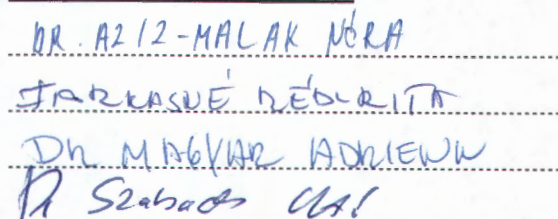 DR. AZIZ-MALAK NÓRA
FARKASNÉ RÉDLRITA
DR MAGYAR ADRIENN
Dr Szabados